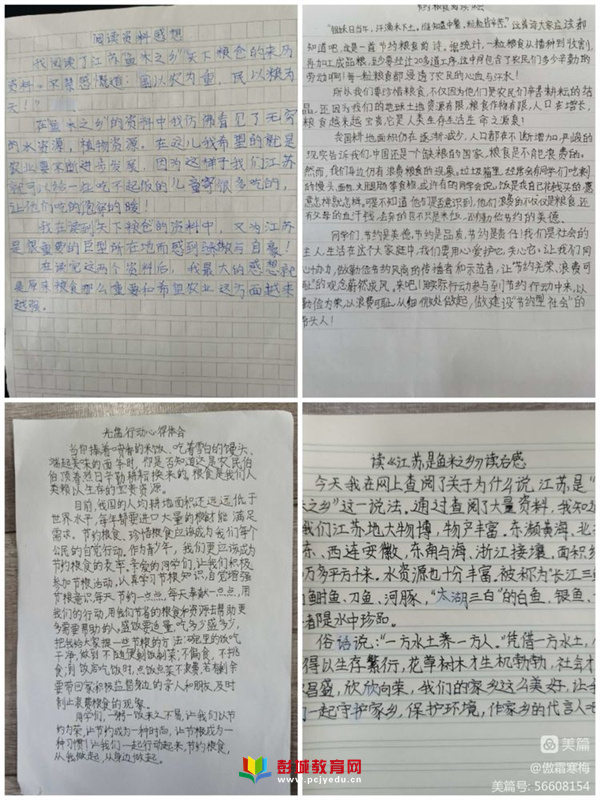 阅读资料感想
我阅读了江苏鱼米之乡天下粮仓的来历
资料。不禁感慨道：国以农为重，民以粮为
天！
在鱼米之乡的资料中我仿佛看见了无穷
的水资源，植物资源。在这儿我希望的就是
农业要不断进步发展，因为这样子我们江苏
就可以给一些吃不起饭的儿童寄很多吃的，
让他们吃的饱穿的暖！
我在读到天下粮仓的资料中，又为江苏
是很重要的巨型所在地而感到骄傲与自豪！
在读完这两个资料后，我最大的感想就
是原来粮食那么重要和希望农业这方面越来
越强。
"锄禾日当午，汗滴禾下土。谁知盘中餐，粒粒皆辛苦。"这首诗大家应该都
知道吧，这是一首节约粮食的诗。据统计，一粒粮食从播种到收割，
再加工成品粮，至少要经过20多道工序，这中间包含了农民们多少辛勤的
劳动啊！每一粒粮食都浸透了农民的心血与汗水！
所以我们要珍惜粮食，不仅因为他们是农民们辛苦耕耘的结
晶，还因为我们的地球土地资源有限，粮食作物有限，人口在增长，
粮食越来越宝贵，它是人类生存生活生命之源泉！
我国耕地面积仍在逐渐减少，人口都在不断增加，严峻的
现实告诉我们，中国还是个缺粮的国家，粮食是不能浪费的。
然而，我们身边仍有浪费粮食的现象。垃圾箱里，经常会有同学们吃剩
的馒头、面包、火腿肠等食物，或许有的同学会说，饭是我自己花钱买的，愿
意怎样就怎样，
有父母的血汗钱，丢弃的也不只是米饭，还有勤俭节约的美德。
同学们，节约是美德，节约是品质，节约是责任！我们是社会的
主人，生活在这个大家庭中，我们要用心爱护它，关心它。让我们同
心协力，做勤俭节约风尚的传播者和示范者，让"节约光荣、浪费可
耻"的观念蔚然成风，来吧！用实际行动参与到节约行动中来，以
勤俭为荣，以浪费可耻，从细微处做起，做建设"节约型社会"的
带头人！
光盘行动心得体会
当你捧着喷香的米饭，吃着雪白的馒头，
端起美味的面条时，你是否知道这是农民伯
伯顶着烈日辛勤耕耘换来的，粮食是我们人
类赖以生存的宝贵资源。
目前，我国的人均耕地面积还远远低于
世界水平，每年都要进口大量的粮食才能满足
需求，节约粮食、珍惜粮食应该成为我们每个
公民的自觉行动。作为青少年，我们更应该成为
节约粮食的表率，亲爱的同学们，让我们积极
参加节粮活动，认真学习节粮知识，自觉增强
节粮意识，每天节约一点点，每天奉献一点点，用
我们的行动，用我们节省的粮食和资源去帮助更
多需要帮助的人，盛饭要适量，吃多少盛多少，
把我给大家提一些节粮的方法：碗里的饭吃
干净，做到不随便剩饭剩菜；不偏食，不挑
食；到饭店吃饭时，点饭点菜不浪费，若有剩余
要带回家积极监督身边的亲人和朋友，及时
制止浪费粮食的现象。
同学们，一粥一饭来之不易，让我们以节
约为荣，让节约成为一种时尚，让节粮成为一
种习惯！让我们一起行动起来，节约粮食，
从我做起，从身边做起。
读《江苏是鱼米之乡》读后感
今天我在网上查阅了关于为什么说，江苏是"
米之乡"这一说法。通过查阅了大量资料，我知道
我们江苏地大物博，物产丰富，东濒黄海，北
东、西连安徽，东南与海、浙江接壤，面积
万多平方千米。水资源也十分丰富，被称为"长江三
的鲥鱼、刀鱼、河豚，"太湖三白"的白鱼、银鱼、
都是水中珍品。
俗语说："一方水土养一方人。"凭借一方水土，
得以生存繁衍，花草树木才生机勃勃，社会才
昌盛，欣欣向荣，我们的家乡这么美好，让
们一起守护家乡，保护环境，作家乡的代言人
彭城教育网
www.pcjyedu.cn
美篇
@傲霜寒梅
美篇号: 56608154